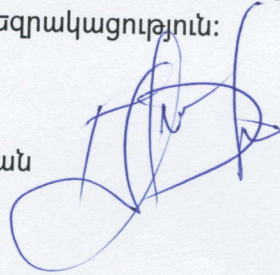 եզրակացություն:
ան